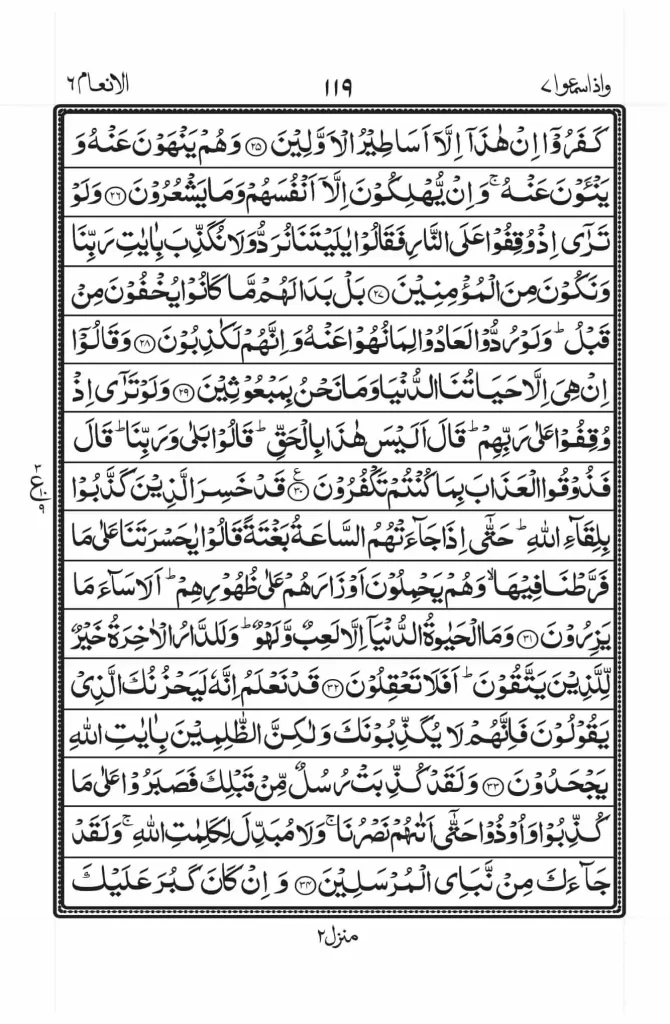 واذاسمعوا۷ ۱۱۹ الانعام۶
كَفَرُوْۤا اِنْ هٰذَاۤ اِلَّاۤ اَسَاطِيْرُ الْاَوَّلِيْنَ ﴿۲۵﴾ وَهُمْ يَنْهَوْنَ عَنْهُ وَ
يَنْـَٔوْنَ عَنْهُ ۚ وَاِنْ يُّهْلِكُوْنَ اِلَّاۤ اَنْفُسَهُمْ وَمَا يَشْعُرُوْنَ ﴿۲۶﴾ وَلَوْ
تَرٰٓى اِذْ وُقِفُوْا عَلَى النَّارِ فَقَالُوْا يٰلَيْتَنَا نُرَدُّ وَلَا نُكَذِّبَ بِاٰيٰتِ رَبِّنَا
وَنَكُوْنَ مِنَ الْمُؤْمِنِيْنَ ﴿۲۷﴾ بَلْ بَدَا لَهُمْ مَّا كَانُوْا يُخْفُوْنَ مِنْ
قَبْلُ ؕ وَلَوْ رُدُّوْا لَعَادُوْا لِمَا نُهُوْا عَنْهُ وَاِنَّهُمْ لَكٰذِبُوْنَ ﴿۲۸﴾ وَقَالُوْۤا
اِنْ هِىَ اِلَّا حَيَاتُنَا الدُّنْيَا وَمَا نَحْنُ بِمَبْعُوْثِيْنَ ﴿۲۹﴾ وَلَوْ تَرٰٓى اِذْ
وُقِفُوْا عَلٰى رَبِّهِمْ ؕ قَالَ اَلَيْسَ هٰذَا بِالْحَقِّ ؕ قَالُوْا بَلٰى وَرَبِّنَا ؕ قَالَ
فَذُوْقُوا الْعَذَابَ بِمَا كُنْتُمْ تَكْفُرُوْنَ ﴿۳۰﴾ ع قَدْ خَسِرَ الَّذِيْنَ كَذَّبُوْا
بِلِقَآءِ اللّٰهِ ؕ حَتّٰٓى اِذَا جَآءَتْهُمُ السَّاعَةُ بَغْتَةً قَالُوْا يٰحَسْرَتَنَا عَلٰى مَا
فَرَّطْنَا فِيْهَا ۙ وَهُمْ يَحْمِلُوْنَ اَوْزَارَهُمْ عَلٰى ظُهُوْرِهِمْ ؕ اَلَا سَآءَ مَا
يَزِرُوْنَ ﴿۳۱﴾ وَمَا الْحَيٰوةُ الدُّنْيَاۤ اِلَّا لَعِبٌ وَّلَهْوٌ ؕ وَلَلدَّارُ الْاٰخِرَةُ خَيْرٌ
لِّلَّذِيْنَ يَتَّقُوْنَ ؕ اَفَلَا تَعْقِلُوْنَ ﴿۳۲﴾ قَدْ نَعْلَمُ اِنَّهٗ لَيَحْزُنُكَ الَّذِىْ
يَقُوْلُوْنَ فَاِنَّهُمْ لَا يُكَذِّبُوْنَكَ وَلٰكِنَّ الظّٰلِمِيْنَ بِاٰيٰتِ اللّٰهِ
يَجْحَدُوْنَ ﴿۳۳﴾ وَلَقَدْ كُذِّبَتْ رُسُلٌ مِّنْ قَبْلِكَ فَصَبَرُوْا عَلٰى مَا
كُذِّبُوْا وَاُوْذُوْا حَتّٰٓى اَتٰٮهُمْ نَصْرُنَا ۚ وَلَا مُبَدِّلَ لِكَلِمٰتِ اللّٰهِ ۚ وَلَقَدْ
جَآءَكَ مِنْ نَّبَاِى الْمُرْسَلِيْنَ ﴿۳۴﴾ وَاِنْ كَانَ كَبُرَ عَلَيْكَ
منزل۲